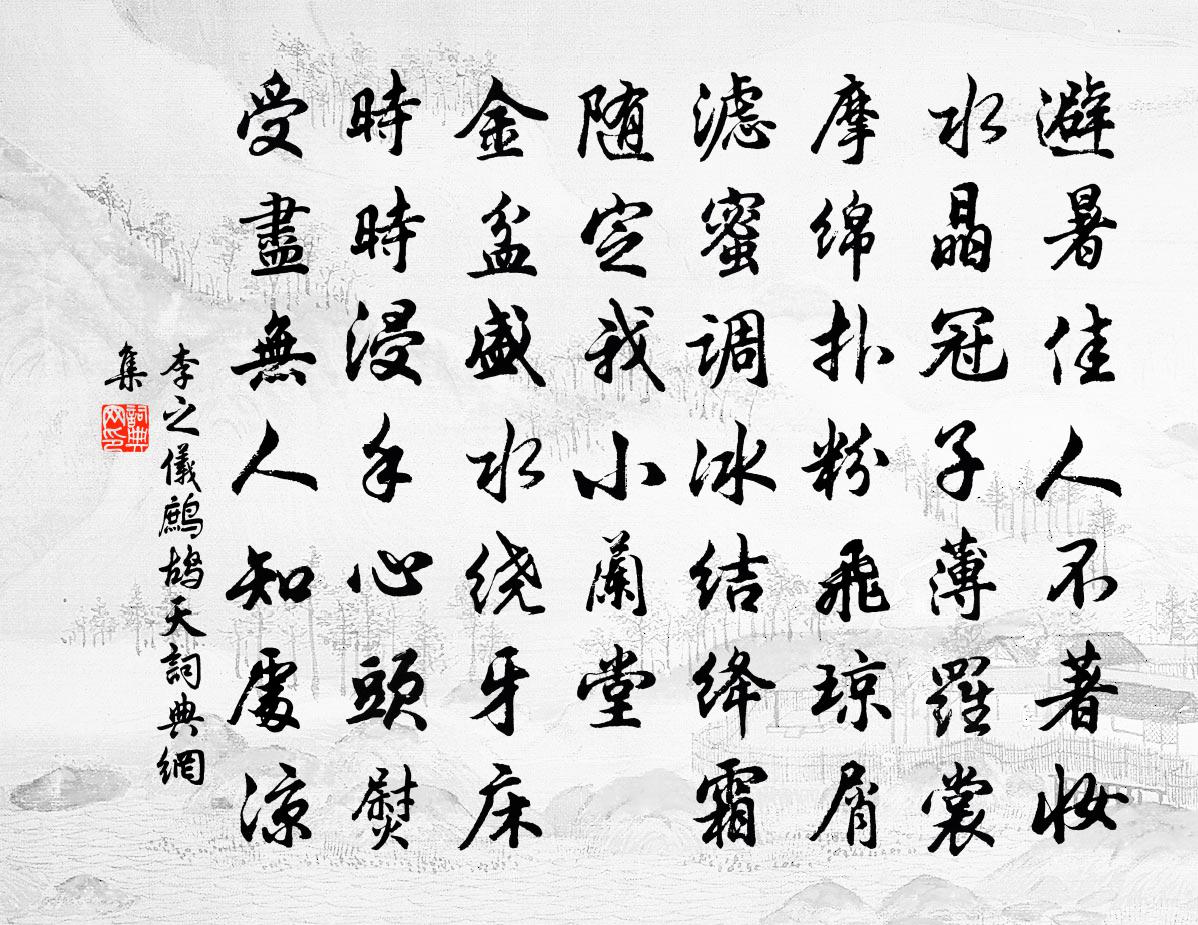 避暑佳人不著妆
水晶冠子薄羅裳
摩绵扑粉飛琼屑
滤蜜调冰结绛霜
随定我小蘭堂
金盆盛水绕牙床
時時浸手心頭熨
受盡無人知處凉
李之儀鷓鴣天詞典網
集
詞典网印